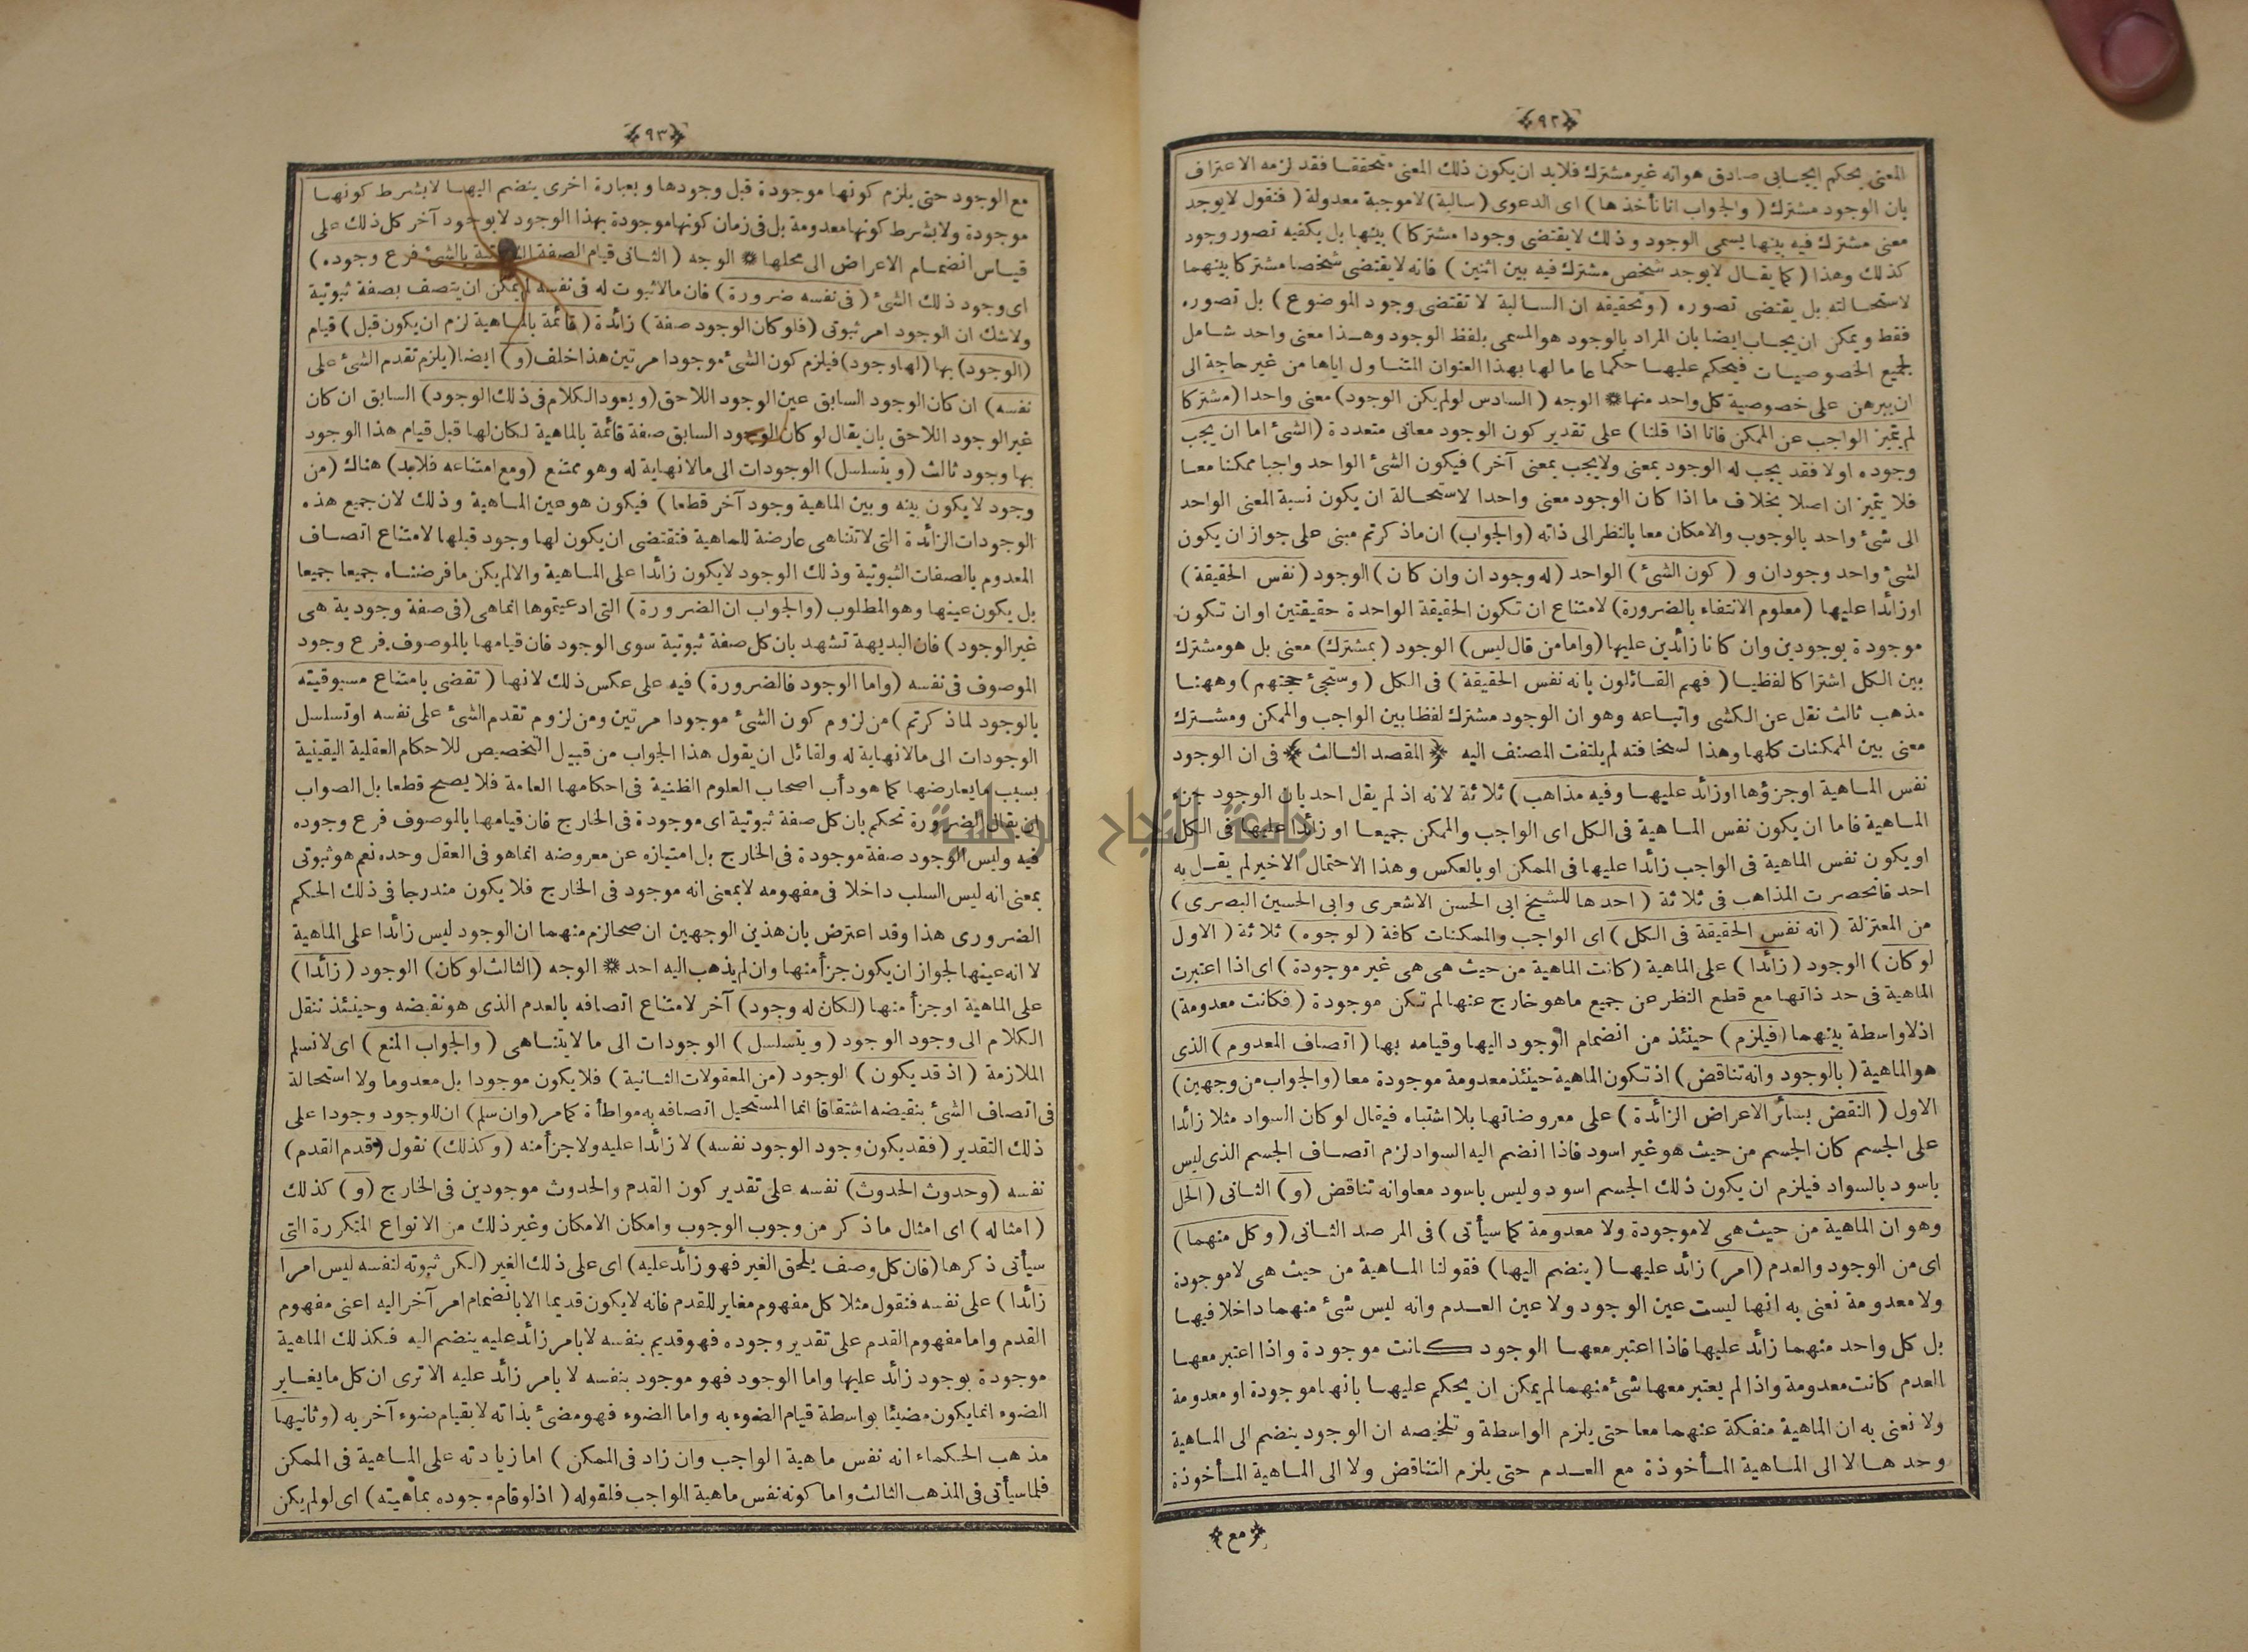 ﴿٩٢﴾
المعنى بحكم ايجابى صادق هو انه غير مشترك فلابد ان يكون ذلك المعنى متحققا فقد لزمه الاعتراف
بان الوجود مشترك ( والجواب انا نأخذها ) اى الدعوى ( سالبة ) لا موجبة معدولة ( فنقول لا يوجد
معنى مشترك فيه بينها يسمى الوجود وذلك لا يقتضى وجودا مشتركا ) بينها بل يكفيه تصور وجود
كذلك وهذا ( كما يقال لا يوجد شخص مشترك فيه بين اثنين ) فانه لا يقتضى شخصا مشتركا بينهما
لاستحالته بل يقتضى تصوره ( وتحقيقه ان السالبة لا تقتضى وجود الموضوع ) بل تصوره
فقط ويمكن ان يجاب ايضا بان المراد بالوجود هو المسمى بلفظ الوجود وهذا معنى واحد شامل
لجميع الخصوصيات فيحكم عليها حكما عاما لها بهذا العنوان المتناول اياها من غير حاجة الى
ان يبرهن على خصوصية كل واحد منها * الوجه ( السادس لو لم يكن الوجود ) معنى واحدا ( مشتركا
لم يتميز الواجب عن الممكن فانا اذا قلنا ) على تقدير كون الوجود معانى متعددة ( الشئ اما ان يجب
وجوده اولا فقد يجب له الوجود بمعنى ولا يجب بمعنى آخر ) فيكون الشئ الواحد واجبا ممكنا معا
فلا يتميزان اصلا بخلاف ما اذا كان الوجود معنى واحدا لاستحالة ان يكون نسبة المعنى الواحد
الى شئ واحد بالوجوب والامكان معا بالنظر الى ذاته ( والجواب ) ان ما ذكرتم مبنى على جواز ان يكون
لشئ واحد وجودان و ( كون الشئ ) الواحد ( له وجودان وان كان ) الوجود ( نفس الحقيقة )
او زائدا عليها ( معلوم الانتفاء بالضرورة ) لامتناع ان تكون الحقيقة الواحدة حقيقتين او ان تكون
موجودة بوجودين وان كانا زائدين عليها ( واما من قال ليس ) الوجود ( بمشترك ) معنى بل هو مشترك
بين الكل اشتراكا لفظيا ( فهم القائلون بانه نفس الحقيقة ) فى الكل ( وستجئ حجتهم ) وههنا
مذهب ثالث نقل عن الكشى واتباعه وهو ان الوجود مشترك لفظا بين الواجب والممكن ومشترك
معنى بين الممكنات كلها وهذا لسخافته لم يلتفت المصنف اليه ﴿ المقصد الثالث ﴾ فى ان الوجود
نفس الماهية او جزؤها او زائد عليها وفيه مذاهب ) ثلاثة لانه اذ لم يقل احد بان الوجود جزء
الماهية فاما ان يكون نفس الماهية فى الكل اى الواجب والممكن جميعا او زائدا عليها فى الكل
او يكون نفس الماهية فى الواجب زائدا عليها فى الممكن او بالعكس وهذا الاحتمال الاخير لم يقل به
احد فانحصرت المذاهب فى ثلاثة ( احدها للشيخ ابى الحسن الاشعرى وابى الحسين البصرى )
من المعتزلة ( انه نفس الحقيقة فى الكل ) اى الواجب والممكنات كافة ( لوجوه ) ثلاثة ( الاول
لو كان ) الوجود ( زائدا ) على الماهية ( كانت الماهية من حيث هى هى غير موجودة ) اى اذا اعتبرت
الماهية فى حد ذاتها مع قطع النظر عن جميع ما هو خارج عنها لم تكن موجودة ( فكانت معدومة )
اذ لا واسطة بينهما ( فيلزم ) حينئذ من انضمام الوجود اليها وقيامه بها ( اتصاف المعدوم ) الذى
هو الماهية ( بالوجود وانه تناقض ) اذ تكون الماهية حينئذ معدومة موجودة معا ( والجواب من وجهين )
الاول ( النقض بسائر الاعراض الزائدة ) على معروضاتها بلا اشتباه فيقال لو كان السواد مثلا زائدا
على الجسم كان الجسم من حيث هو غير اسود فاذا انضم اليه السواد لزم اتصاف الجسم الذى ليس
باسود بالسواد فيلزم ان يكون ذلك الجسم اسود وليس باسود معا وانه تناقض ( و ) الثانى ( الحل
وهو ان الماهية من حيث هى لا موجودة ولا معدومة كما سيأتى ) فى المرصد الثانى ( وكل منهما )
اى من الوجود والعدم ( امر ) زائد عليها ( ينضم اليها ) فقولنا الماهية من حيث هى لا موجودة
ولا معدومة نعنى به انها ليست عين الوجود ولا عين العدم وانه ليس شئ منهما داخلا فيها
بل كل واحد منهما زائد عليها فاذا اعتبر معها الوجود كانت موجودة واذا اعتبر معها
العدم كانت معدومة واذا لم يعتبر معها شئ منهما لم يمكن ان يحكم عليها بانها موجودة او معدومة
ولا نعنى به ان الماهية منفكة عنهما معا حتى يلزم الواسطة وتلخيصه ان الوجود ينضم الى الماهية
وحدها لا الى الماهية المأخوذة مع العدم حتى يلزم التناقض ولا الى الماهية المأخوذة
﴿ مع ﴾
﴿٩٣﴾
مع الوجود حتى يلزم كونها موجودة قبل وجودها وبعبارة اخرى ينضم اليها لا بشرط كونها
موجودة ولا بشرط كونها معدومة بل فى زمان كونها موجودة بهذا الوجود لا بوجود آخر كل ذلك على
قياس انضمام الاعراض الى محلها * الوجه ( الثانى قيام الصفة بالشئ فرع وجوده )
اى وجود ذلك الشئ ( فى نفسه ضرورة ) فان مالا ثبوت له فى نفسه لم يمكن ان يتصف بصفة ثبوتية
ولاشك ان الوجود امر ثبوتى ( فلو كان الوجود صفة ) زائدة ( قائمة بالماهية لزم ان يكون قبل ) قيام
( الوجود ) بها ( لها وجود ) فيلزم كون الشئ موجودا مرتين هذا خلف ( و ) ايضا ( يلزم تقدم الشئ على
نفسه ) ان كان الوجود السابق عين الوجود اللاحق ( ويعود الكلام فى ذلك الوجود ) السابق ان كان
غير الوجود اللاحق بان يقال لو كان الوجود السابق صفة قائمة بالماهية لكان لها قبل قيام هذا الوجود
بها وجود ثالث ( ويتسلسل ) الوجودات الى مالا نهاية له وهو ممتنع ( ومع امتناعه فلابد ) هناك ( من
وجود لا يكون بينه وبين الماهية وجود آخر قطعا ) فيكون هو عين الماهية وذلك لان جميع هذه
الوجودات الزائدة التى لا تتناهى عارضة للماهية فتقتضى ان يكون لها وجود قبلها لامتناع اتصاف
المعدوم بالصفات الثبوتية وذلك الوجود لا يكون زائدا على الماهية والا لم يكن ما فرضناه جميعا جميعا
بل يكون عينها وهو المطلوب ( والجواب ان الضرورة ) التى ادعيتموها انما هى ( فى صفة وجودية هى
غير الوجود ) فان البديهة تشهد بان كل صفة ثبوتية سوى الوجود فان قيامها بالموصوف فرع وجود
الموصوف فى نفسه ( واما الوجود فالضرورة ) فيه على عكس ذلك لانها ( تقضى بامتناع مسبوقيته
بالوجود لما ذكرتم ) من لزوم كون الشئ موجودا مرتين ومن لزوم تقدم الشئ على نفسه او تسلسل
الوجودات الى مالا نهاية له ولقائل ان يقول هذا الجواب من قبيل التخصيص للاحكام العقلية اليقينية
بسبب ما يعارضها كما هو دأب اصحاب العلوم الظنية فى احكامها العامة فلا يصح قطعا بل الصواب
ان يقال الضرورة تحكم بان كل صفة ثبوتية اى موجودة فى الخارج فان قيامها بالموصوف فرع وجوده
فيه وليس الوجود صفة موجودة فى الخارج بل امتيازه عن معروضه انما هو فى العقل وحده نعم هو ثبوتى
بمعنى انه ليس السلب داخلا فى مفهومه لا بمعنى انه موجود فى الخارج فلا يكون مندرجا فى ذلك الحكم
الضرورى هذا وقد اعترض بان هذين الوجهين ان صحا لزم منهما ان الوجود ليس زائدا على الماهية
لا انه عينها لجواز ان يكون جزأ منها وان لم يذهب اليه احد * الوجه ( الثالث لو كان ) الوجود ( زائدا )
على الماهية او جزأ منها ( لكان له وجود ) آخر لامتناع اتصافه بالعدم الذى هو نقيضه وحينئذ ننقل
الكلام الى وجود الوجود ( ويتسلسل ) الوجودات الى مالا يتناهى ( والجواب المنع ) اى لا نسلم
الملازمة ( اذ قد يكون ) الوجود ( من المعقولات الثانية ) فلا يكون موجودا بل معدوما ولا استحالة
فى اتصاف الشئ بنقيضه اشتقاقا انما المستحيل اتصافه به مواطأة كما مر ( وان سلم ) ان للوجود وجودا على
ذلك التقدير ( فقد يكون وجود الوجود نفسه ) لا زائدا عليه ولا جزأ منه ( وكذلك ) نقول ( قدم القدم )
نفسه ( وحدوث الحدوث ) نفسه على تقدير كون القدم والحدوث موجودين فى الخارج ( و ) كذلك
( امثاله ) اى امثال ما ذكر من وجوب الوجوب وامكان الامكان وغير ذلك من الانواع المتكررة التى
سيأتى ذكرها ( فان كل وصف يلحق الغير فهو زائد عليه ) اى على ذلك الغير ( لكن ثبوته لنفسه ليس امرا
زائدا ) على نفسه فنقول مثلا كل مفهوم مغاير للقدم فانه لا يكون قديما الا بانضمام امر آخر اليه اعنى مفهوم
القدم واما مفهوم القدم على تقدير وجوده فهو قديم بنفسه لا بامر زائد عليه ينضم اليه فكذلك الماهية
موجودة بوجود زائد عليها واما الوجود فهو موجود بنفسه لا بامر زائد عليه الا ترى ان كل ما يغاير
الضوء انما يكون مضيئا بواسطة قيام الضوء به واما الضوء فهو مضئ بذاته لا بقيام ضوء آخر به ( وثانيها
مذهب الحكماء انه نفس ماهية الواجب وان زاد فى الممكن ) اما زيادته على الماهية فى الممكن
فلما سيأتى فى المذهب الثالث واما كونه نفس ماهية الواجب فلقوله ( اذ لو قام وجوده بماهيته ) اى لو لم يكن
جامعة النجاح الوطنية